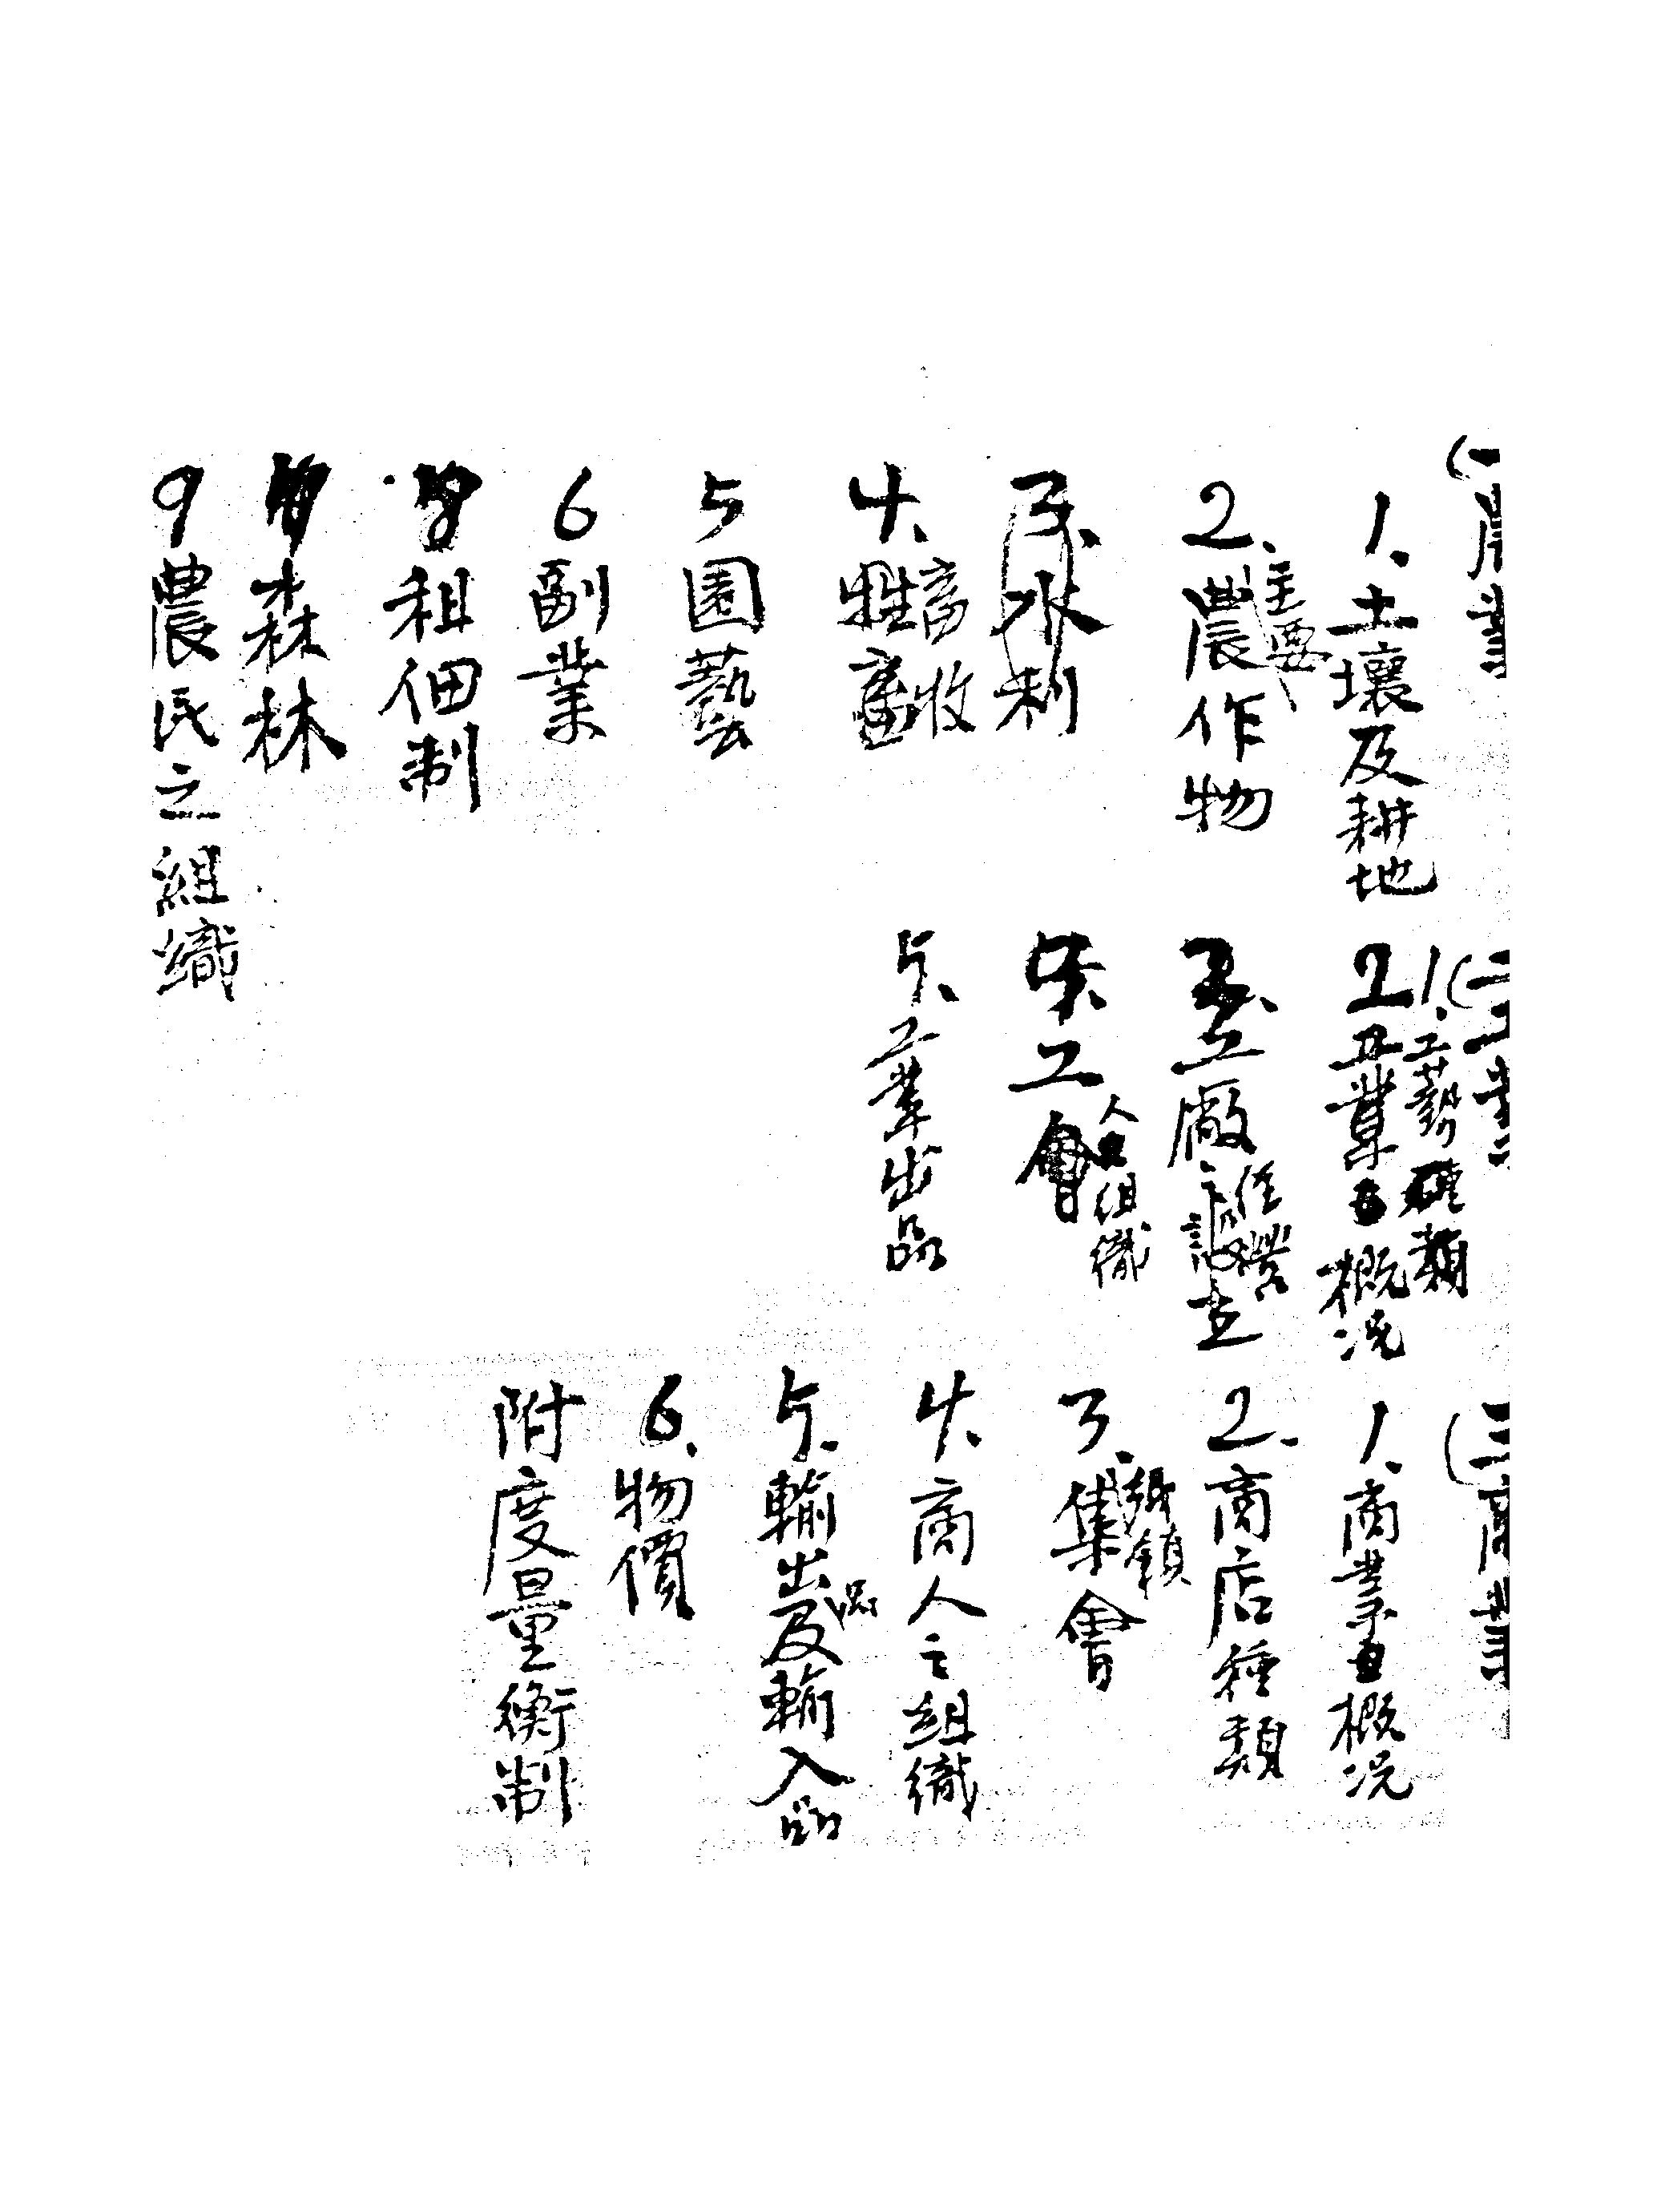 (一農業
1、土壤及耕地
2、主要農作物
3、水利
4、畜牧牲畜
5園藝
6副業
租佃制
森林
9農民之組織
(二工業
1、工藝種類
2工業概況
3、工廠之設立經營
4、工會人組織
5、工業出品
(三商業
1、商業概況
2、商店種類
3、集會鄉鎮
4、商人之組織
5、輸出品及輸入品
6、物價
附度量衡制